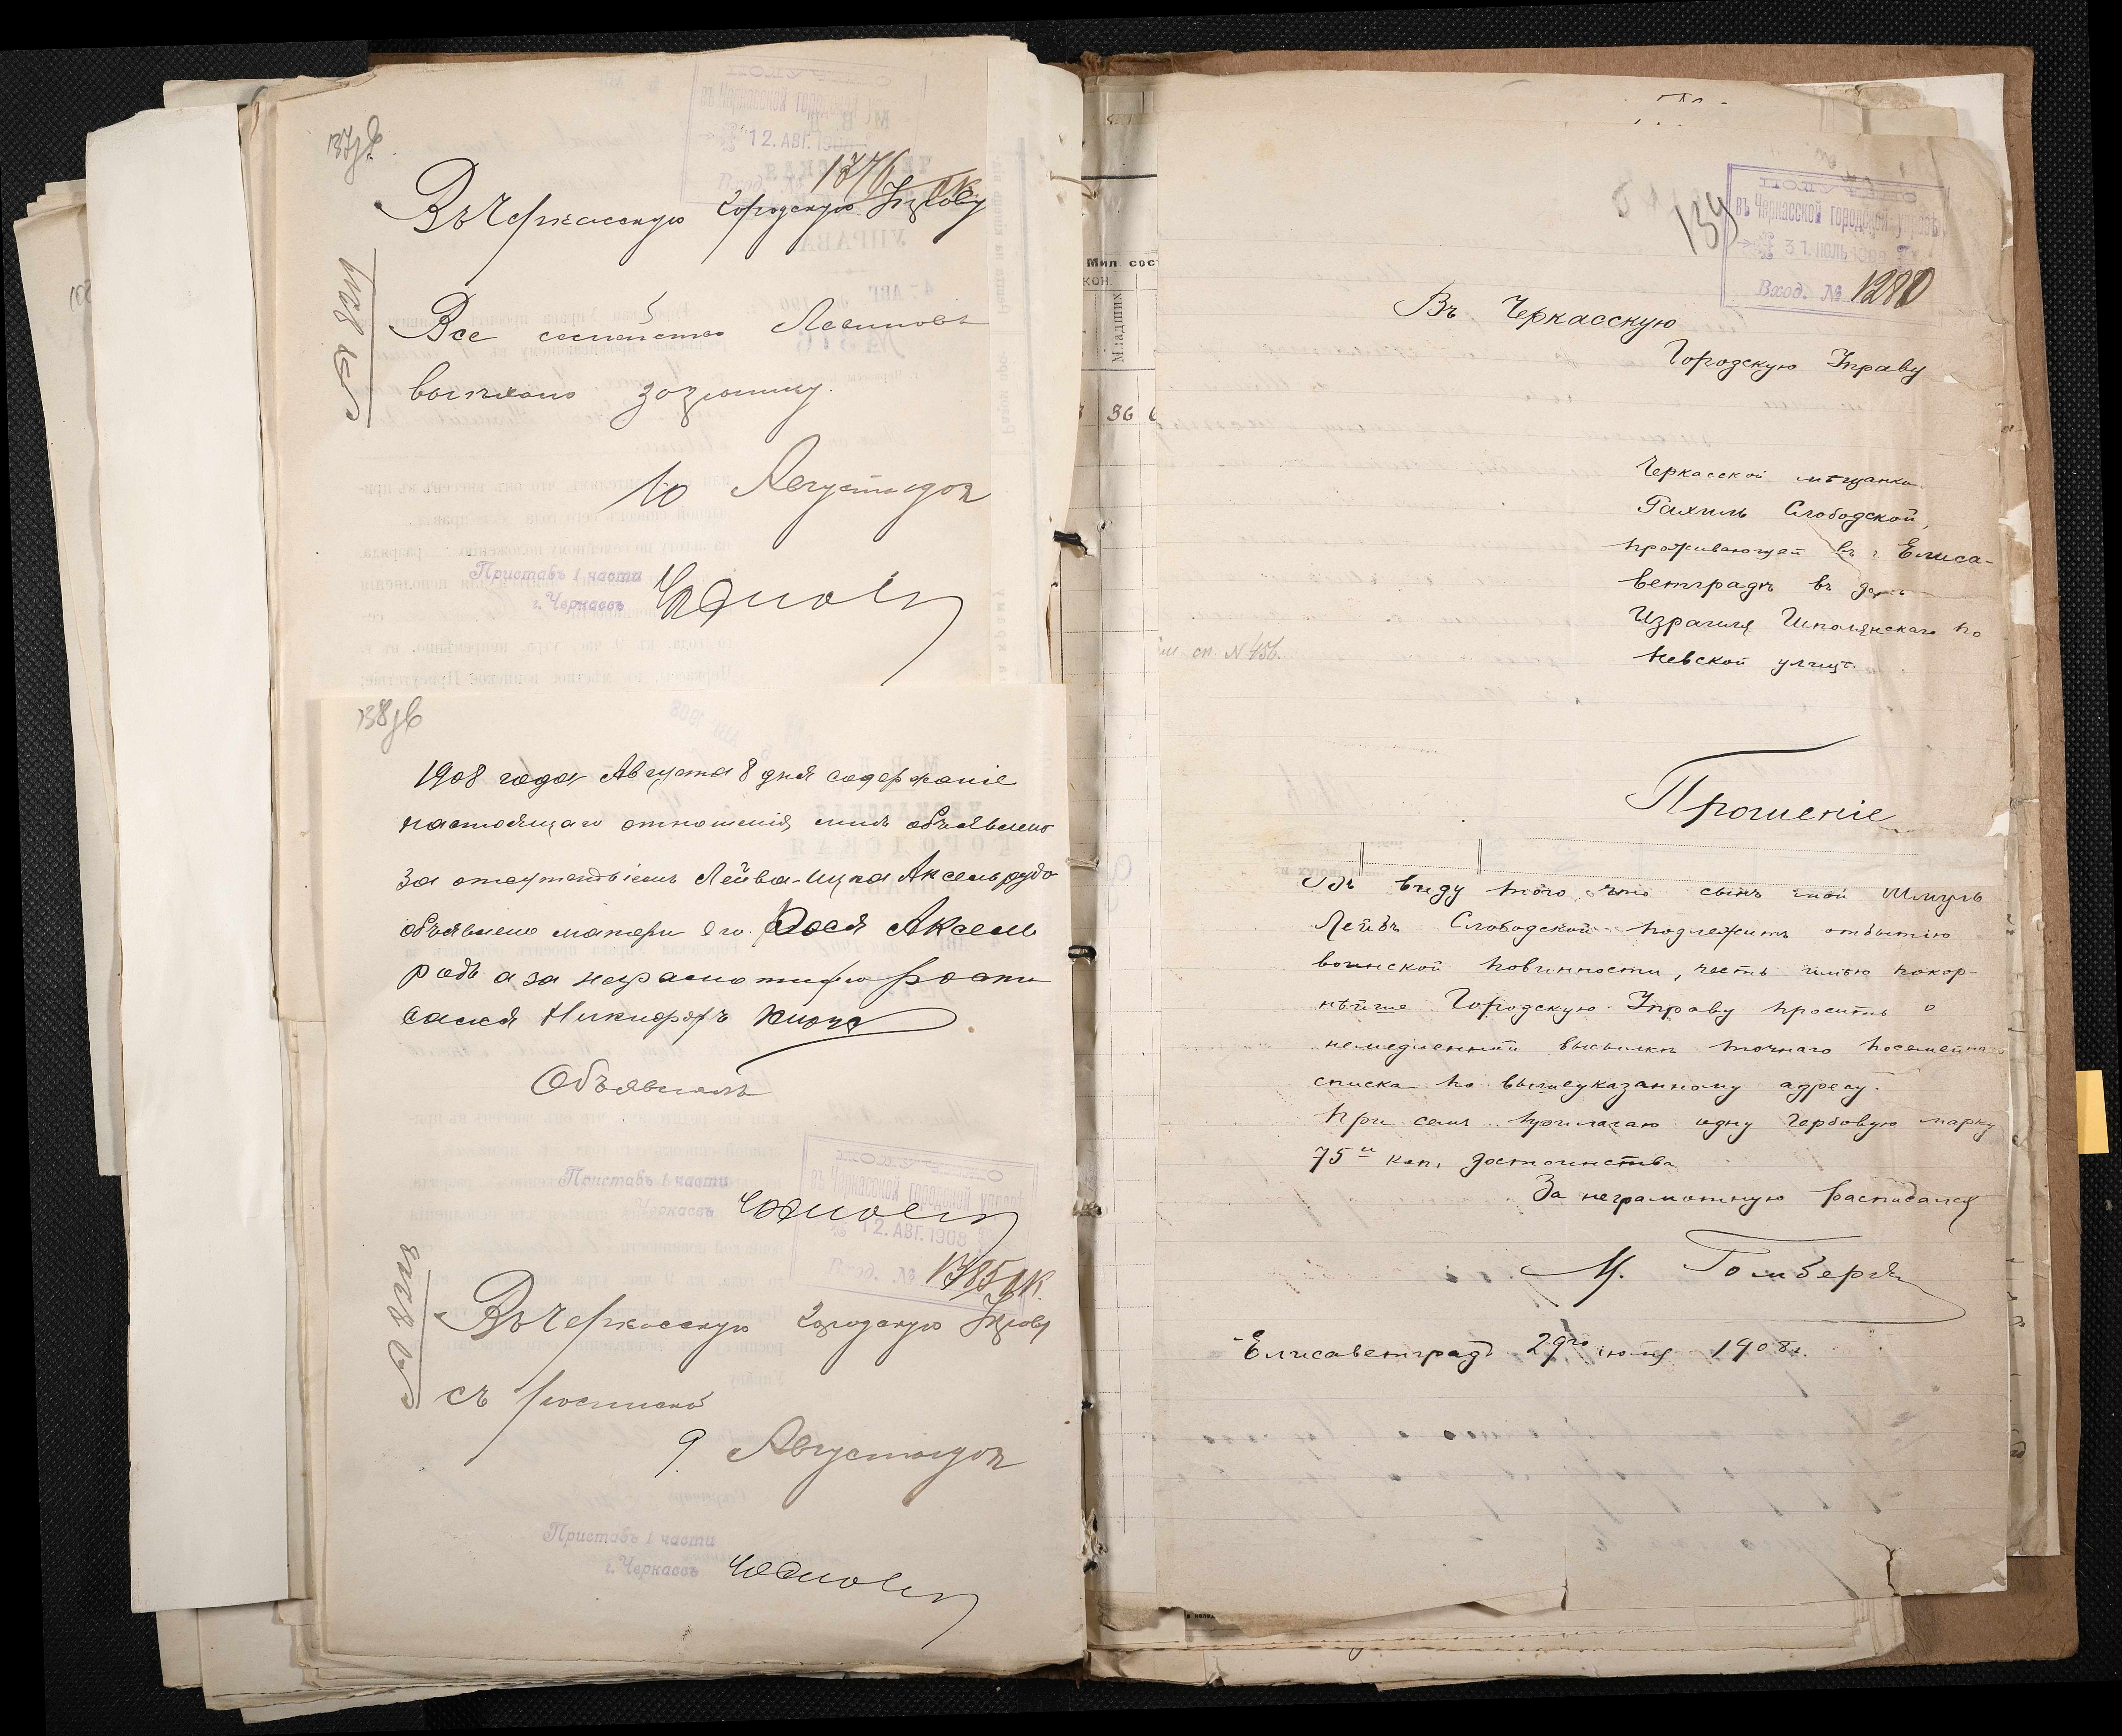 137об
12. АВГ. 1908
1376
Въ Черкасскую Городскую Управу
№ 8211
Все семейство Левиновъ
выехало заграницу.
10 Августа 1908
Приставъ 1 части
г. Черкассъ
138об
1908 года Августа 8 дня содержаніе
настоящаго отношенія мнѣ объявлено
За отсутствіемъ Лейва-Ицка Аксельрудо
объявлено матери его Аксель
родъ а за неграмотную роспи
сался Никифоръ
Объявилъ
Приставъ 1 части
г. Черкассъ
въ Черкасской городской управѣ
12. АВГ. 1908
Вход. № 1385
№ 8212
Въ Черкасскую Городскую Управу
съ роспиской
9 Августа 1908
Приставъ 1 части
г. Черкассъ
Мил. сос
кон.
Младшихъ
36
139
ПОЛУЧЕНО
въ Черкасской городской управѣ
31. ИЮЛЬ 1908
Вход. № 1280
Въ Черкасскую
Городскую Управу
Черкасской мѣщанки
Рахиль Слободской,
проживающей въ г. Елиса-
ветградѣ въ домѣ
Израиля Шполянскаго по
Невской улицѣ.
сп. N 456.
Прошеніе
Въ виду того, что сынъ мой Шмуль
Лейбъ Слободской подлежитъ отбытію
воинской повинности, честь имѣю покор-
нѣйше Городскую Управу просить о
немедленной высылкѣ точнаго посемейнаго
списка по вышеуказанному адресу.
При семъ прилагаю одну гербовую марку
75 и коп. достоинства
За неграмотную расписался
М. Гомбергъ
Елисаветградъ 29го іюля 1908 г.